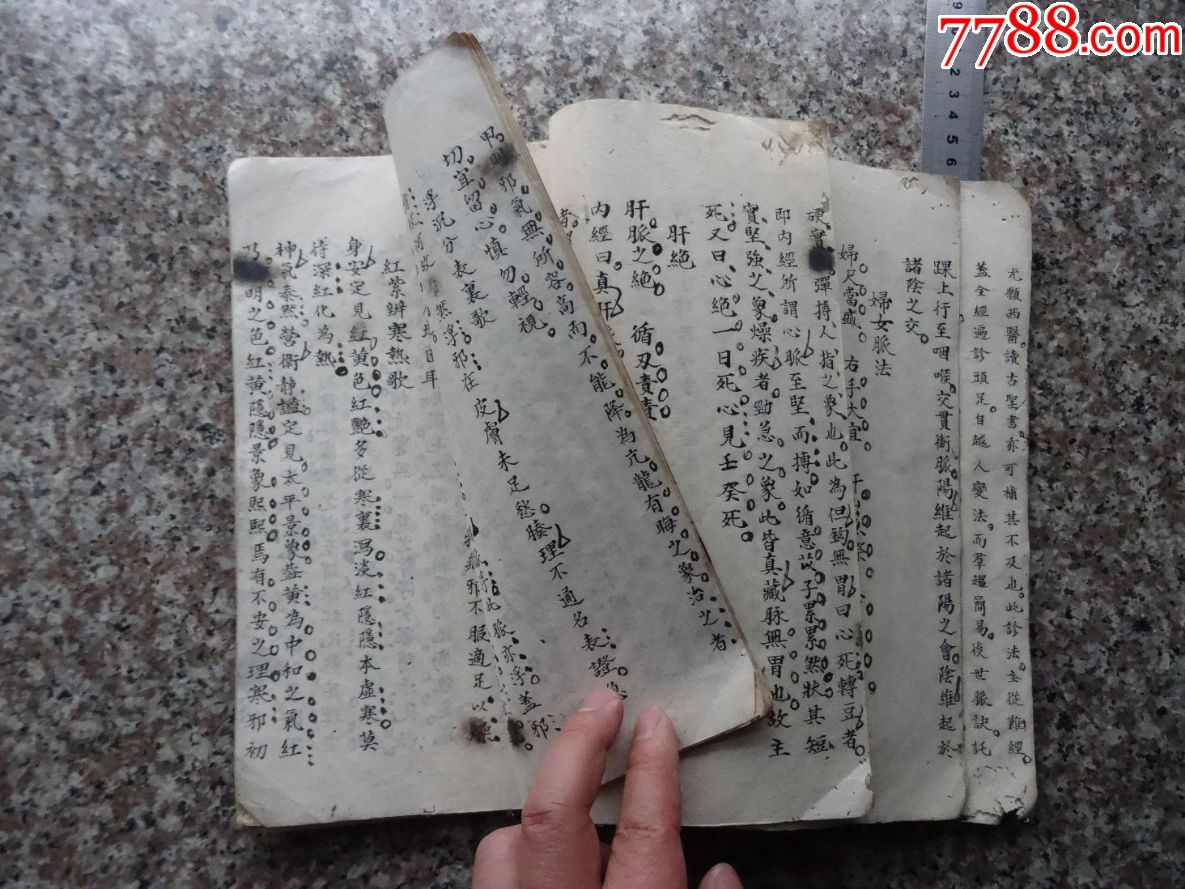 7788.com
9
2 3 4 5 6
尤願西醫讀古聖書亦可補其不及也此診法全從難經
蓋全經遍診頭足自越人變法而羣趨簡易後世脈訣託
踝上行至咽喉交貫衝脈陽維起於諸陽之會陰維起於
諸陰之交
婦女脈法
婦尺當盛 右手大宜
硬實 彈搏人指之象也此為但鈎無胃曰心死轉豆者
即內經所謂心脈至堅而搏如循意苡子累累然狀其短
實堅強之象燥疾者勁急之象此皆真藏脉無胃也故主
死又曰心絕一日死心見壬癸死
肝絕
肝脈之絕 循刃責責
內經曰真肝
邪氣無所容高而不能降為亢龍有晦之象治之者
切宜留心慎勿輕視
浮沉分表裏歌
浮邪在皮膚未足愁腠理不通名表證
此脈亦浮蓋邪
不服適足以
紅紫辨寒熱歌
身安定見紅黄色紅艷多從寒裏瀉淡紅隱隱本虛寒莫
待深紅化為熱
神氣泰然營衛静謐定見太平景象蓋黄為中和之氣紅
乃 明之色紅黄隱隱景象熙熙焉有不安之理寒邪初